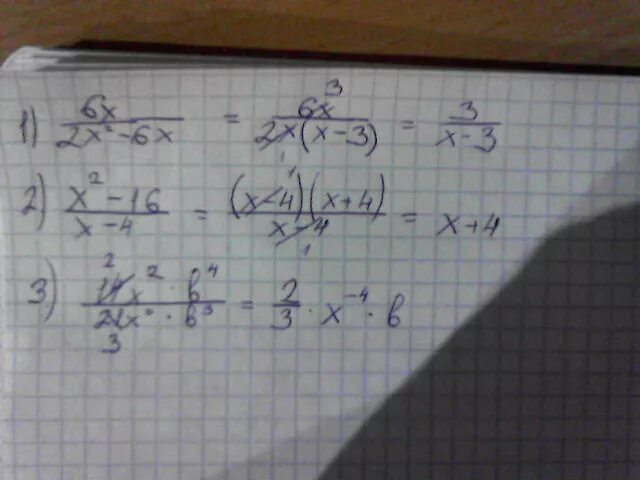 1) 6x / (2x² - 6x) = 6x / (2x(x - 3)) = 3 / (x - 3)
2) (x² - 16) / (x - 4) = ((x - 4)(x + 4)) / (x - 4) = x + 4
3) (14x² · b⁴) / (21x · b³) = 2/3 · x⁻⁴ · b